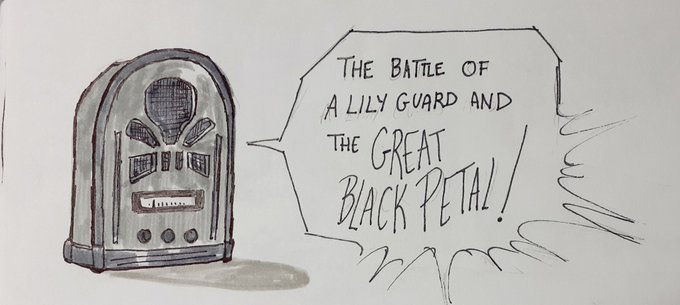 THE BATTLE OF
A LILY GUARD AND
THE GREAT
BLACK PETAL!